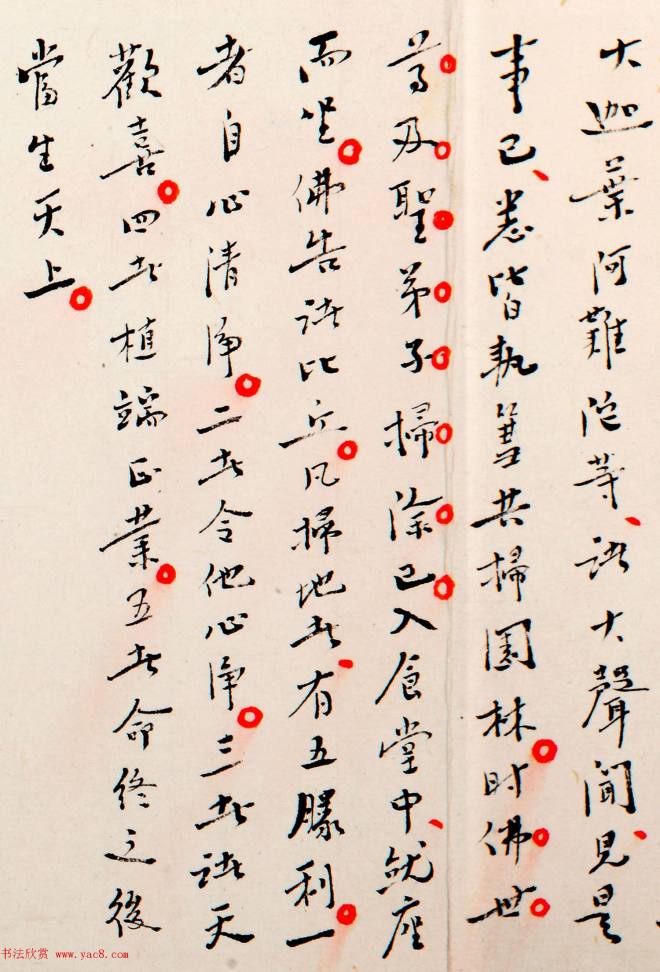 大迦葉阿難陀等、諸大聲聞、見是
事已、悉皆執篲共掃園林。時佛世
尊。及。聖。弟。子。掃。除。已。入食堂中、就座
而坐。佛告諸比丘。凡掃地者、有五勝利。一
者自心清淨。二者令他心淨。三者諸天
歡喜。四者植端正業。五者命終之後
當生天上。
书法欣赏 www.yac8.com